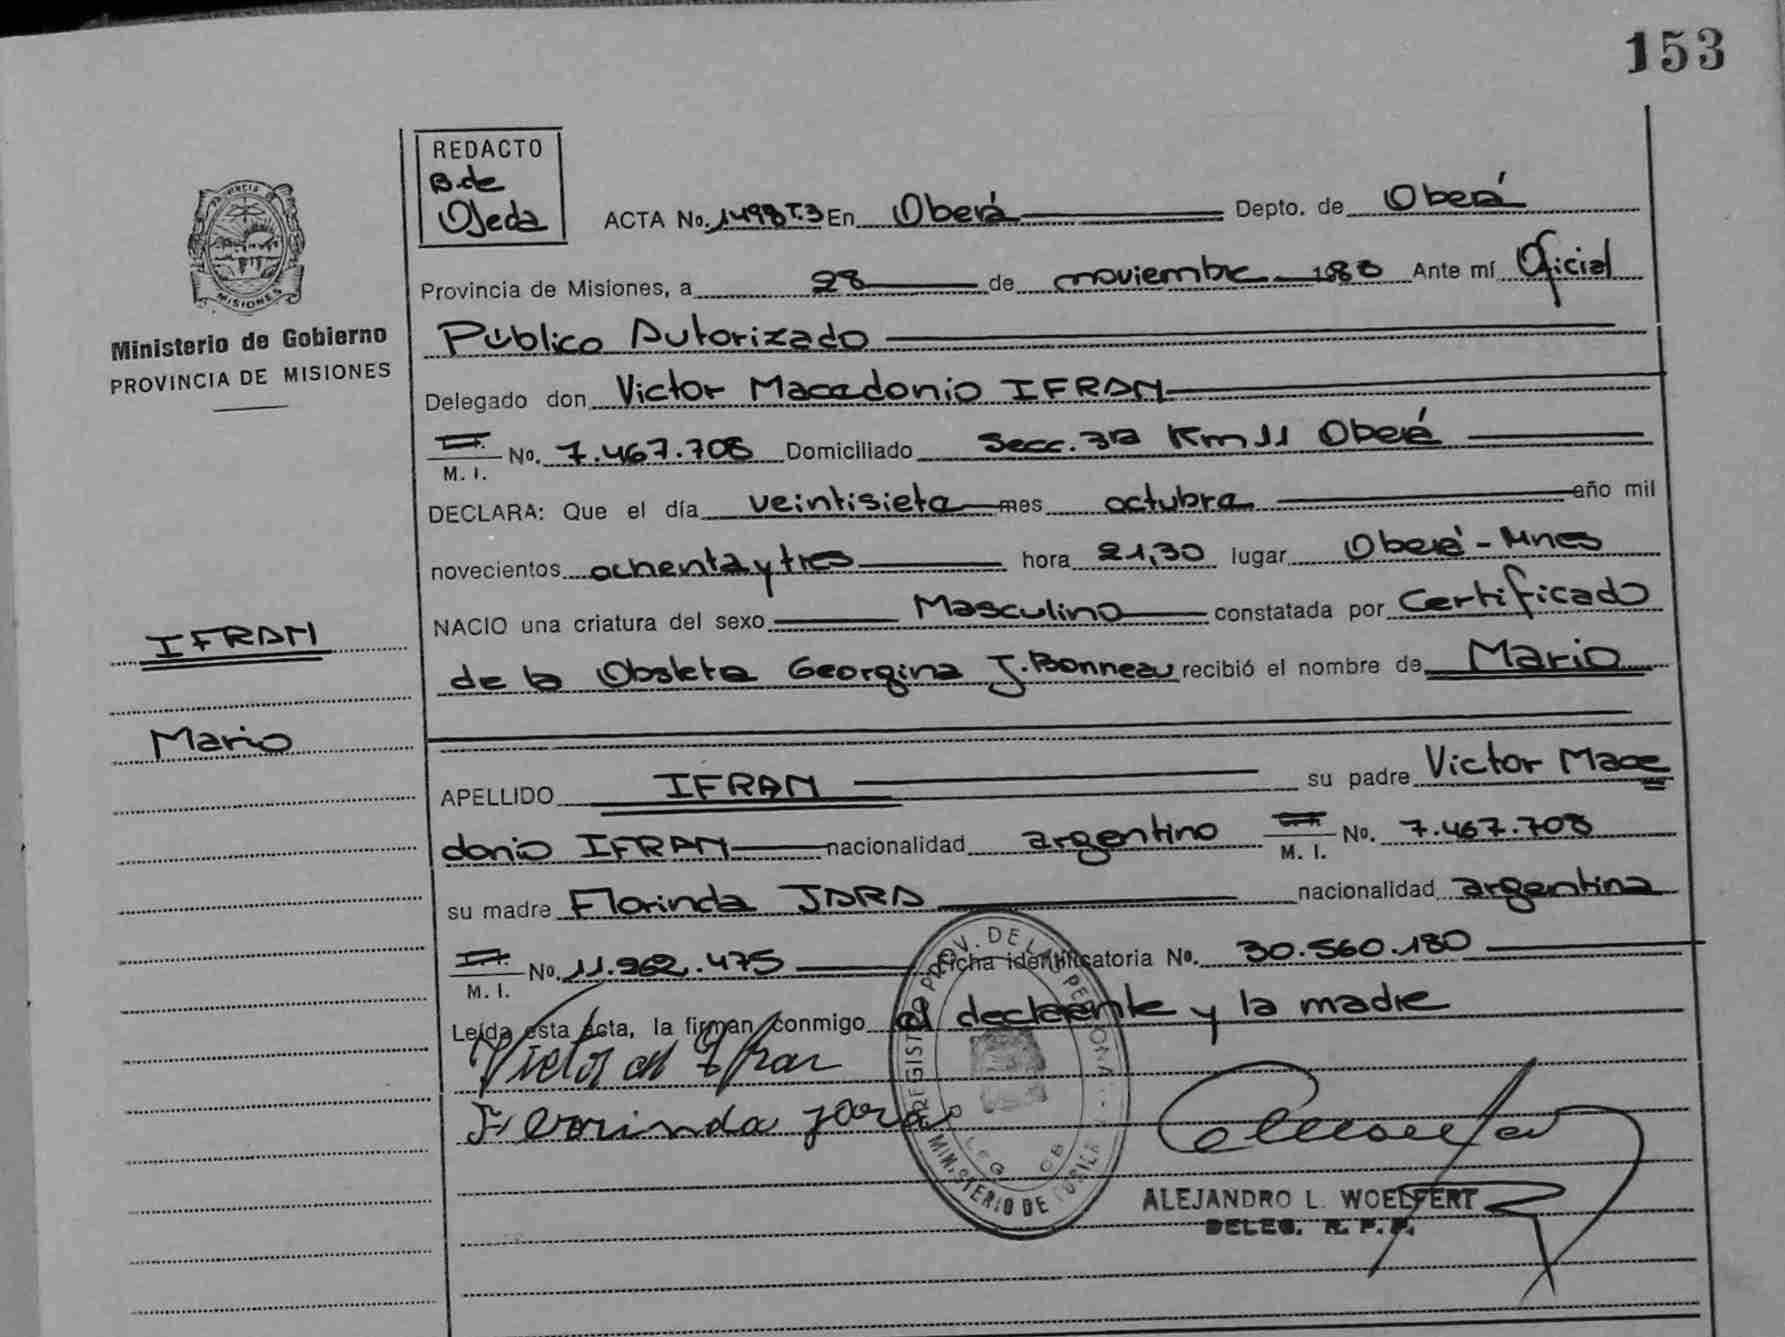 153
REDACTO
B. de
Ojeda
ACTA No. 1498 T.3 En Oberá Depto. de Oberá
Provincia de Misiones, a 28 de noviembre 1983 Ante mí Oficial
Público Autorizado
MISIONES
Ministerio de Gobierno
PROVINCIA DE MISIONES
Delegado don Victor Macedonio IFRAN
M. I. No. 7.467.708 Domiciliado Secc. 3ra Km 11 Oberá
DECLARA: Que el día veintisiete mes octubre año mil
novecientos ochenta y tres hora 21,30 lugar Oberá - Mnes
NACIO una criatura del sexo Masculino constatada por Certificado
IFRAN
de la Obsteta Georgina J. Bonneau recibió el nombre de Mario
Mario
APELLIDO IFRAN su padre Victor Mace
donio IFRAN nacionalidad argentino M. I. No. 7.467.708
su madre Florinda JARA nacionalidad argentina
M. I. No. 11.962.475 Ficha identificatoria No. 30.560.180
Leída esta acta, la firman conmigo el declarante y la madre
Victor M Ifran
Florinda Jara
MINISTERIO DE
ALEJANDRO L. WOELFERT
DELEG. R. P. P.